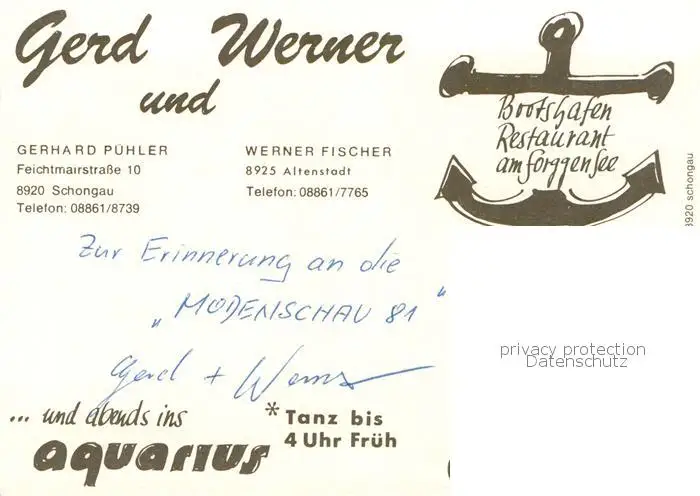 Gerd Werner
und
GERHARD PÜHLER
Feichtmairstraße 10
8920 Schongau
Telefon: 08861/8739
WERNER FISCHER
8925 Altenstadt
Telefon: 08861/7765
Bootshafen
Restaurant
am forggensee
8920 schongau
Zur Erinnerung an die
„MODENSCHAU 81"
Gerd + Werner
privacy protection
Datenschutz
... und abends ins
aquarius
* Tanz bis
4 Uhr Früh